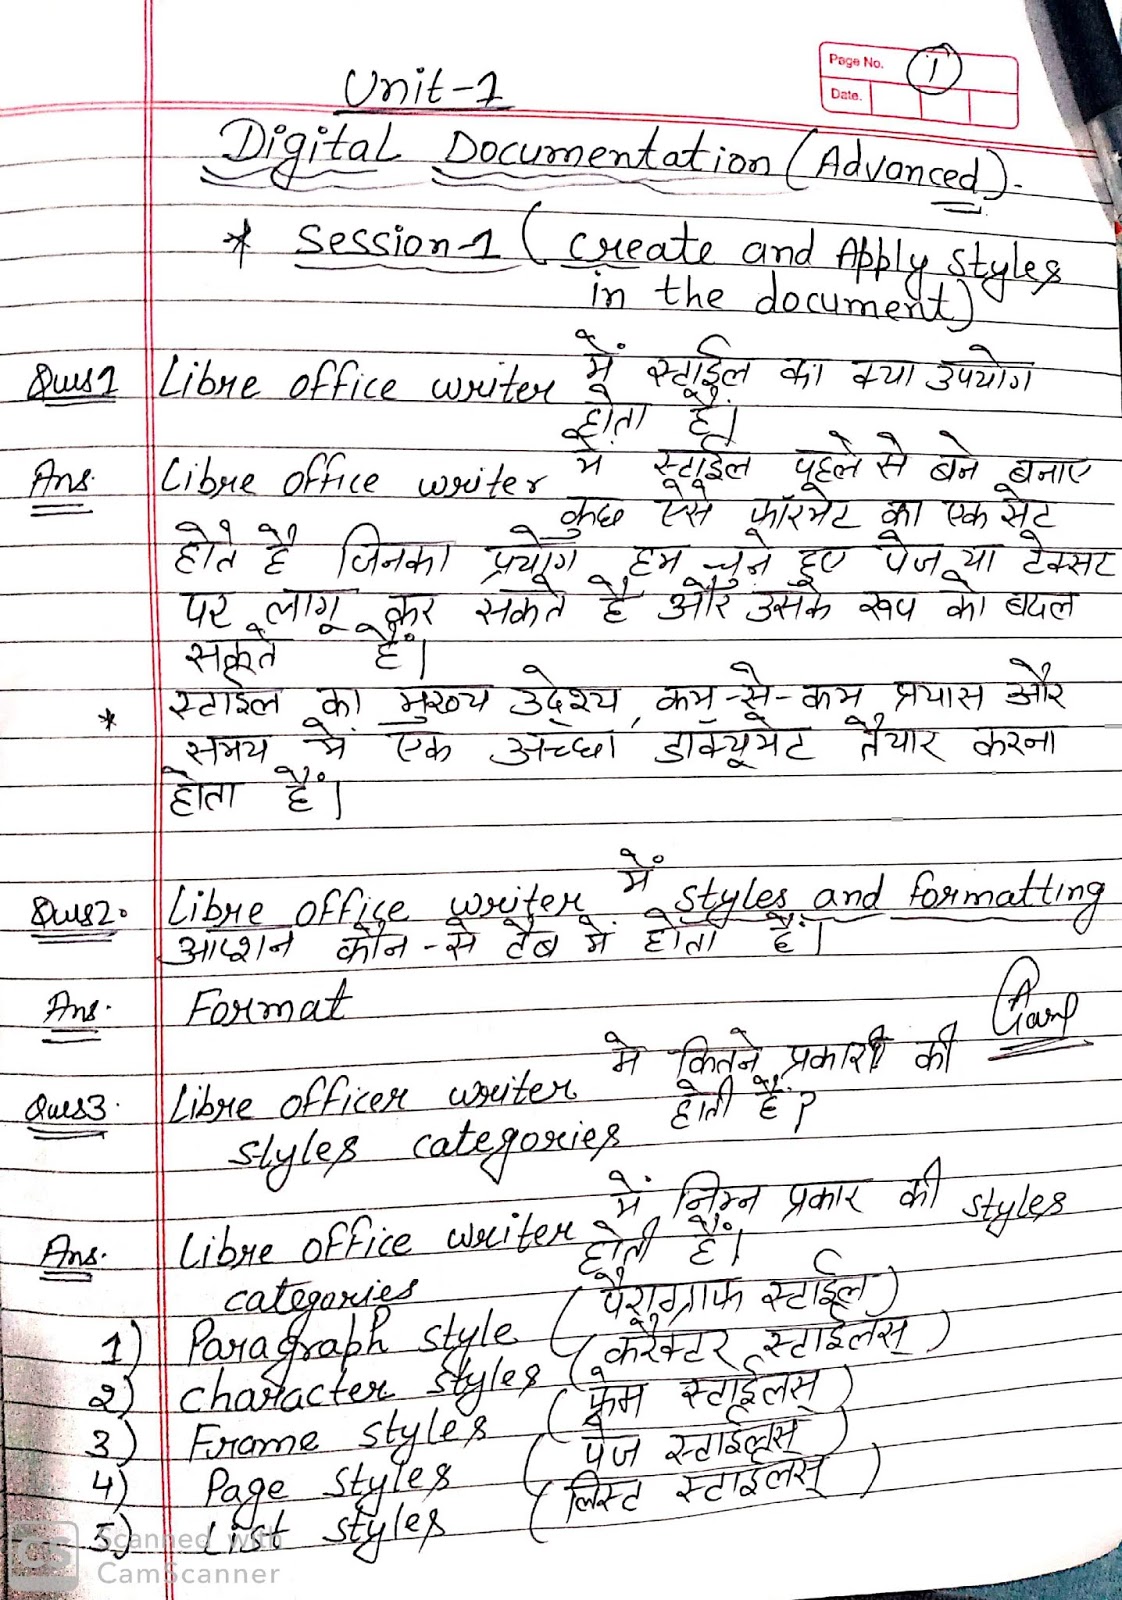 Page No. 1
Date.
Unit-1
Digital Documentation (Advanced).
* Session-1 (Create and Apply styles
in the document)
Ques1 Libre office writer में स्टाईल का क्या उपयोग
होता है।
Ans. Libre office writer में स्टाईल पहले से बने बनाए
कुछ ऐसे फॉरमेट का एक सेट
होते है जिनका प्रयोग हम चुने हुए पेज या टेक्सट
पर लागू कर सकते है और उसके रूप को बदल
सकते हैं।
* स्टाईल का मुख्य उद्देश्य, कम-से-कम प्रयास और
समय में एक अच्छा डॉक्यूमेंट तैयार करना
होता हैं।
Ques2. Libre office writer में styles and formatting
आप्शन कौन-से टैब में होता हैं।
Ans. Format
Ques3. Libre officer writer में कितने प्रकार की
styles categories होती है?
Ans. Libre office writer में निम्न प्रकार की styles
categories होती हैं।
1) Paragraph style (पैराग्राफ स्टाईल)
2) character styles (करैक्टर स्टाईलस्)
3) Frame styles (फ्रेम स्टाईलस्)
4) Page styles (पेज स्टाईलस्)
5) List styles (लिस्ट स्टाईलस्)
CS Scanned with
CamScanner